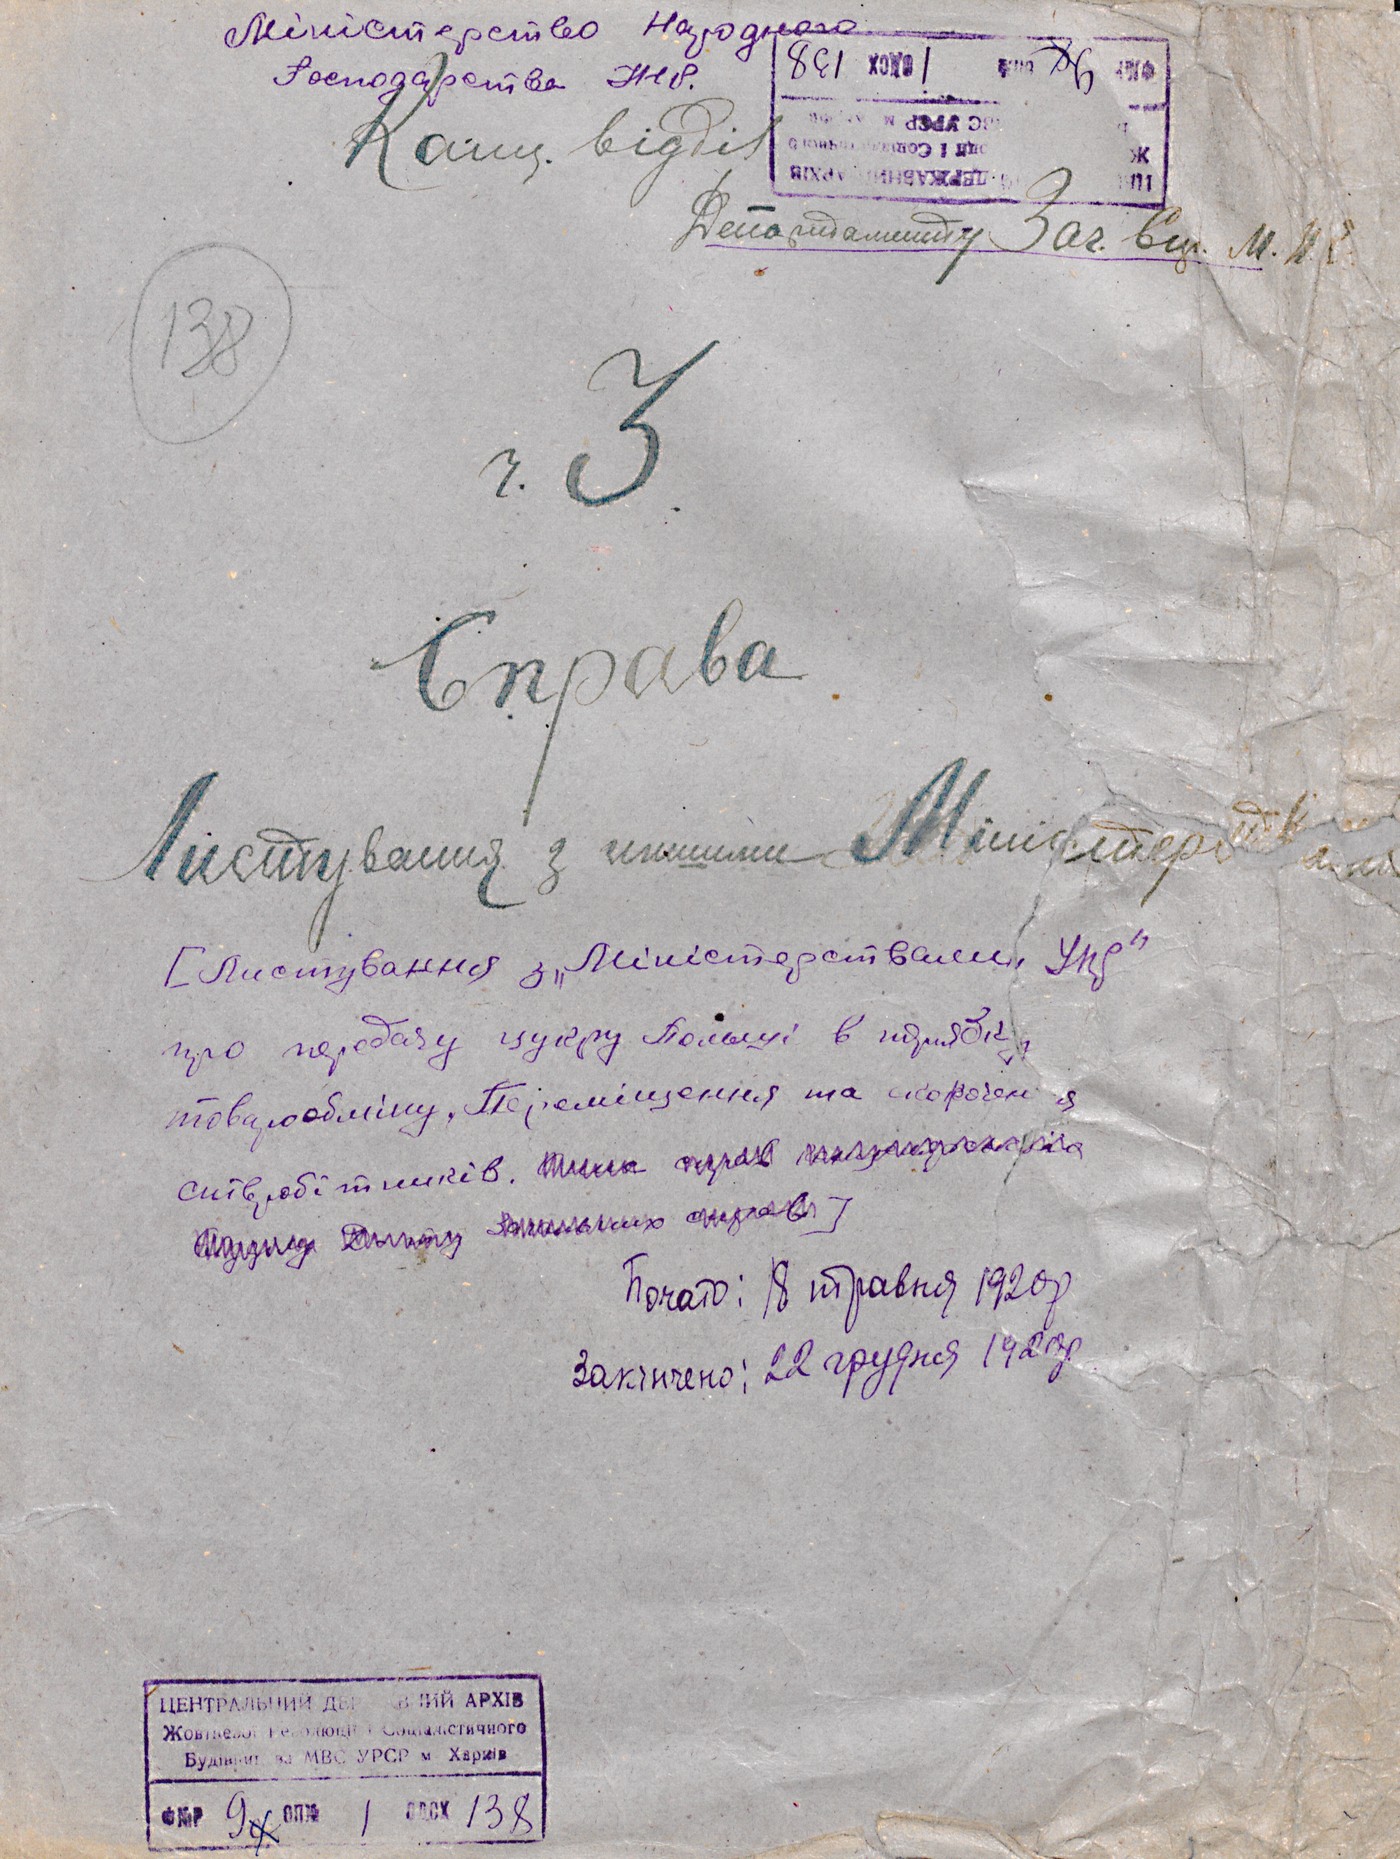 Міністерство Народного
Господарства УНР.
Канц. відділ
Департаменту Заг. М. Н. Г.
ОДСХ 138
138
ч. 3
Справа
Листування з иншими Міністерствами
[Листування з „Міністерствами УНР"
про передачу цукру Польщі в порядку
товарообміну. Переміщення та скорочення
співробітників.
Почато: 8 травня 1920р
Закінчено: 22 грудня 1920р.
ЦЕНТРАЛЬНИЙ ДЕРЖАВНИЙ АРХІВ
Жовтневої Революції і Соціалістичного
Будівництва МВС УРСР м Харків
Ф№Р 9 ОП№ 1 ОДСХ 138